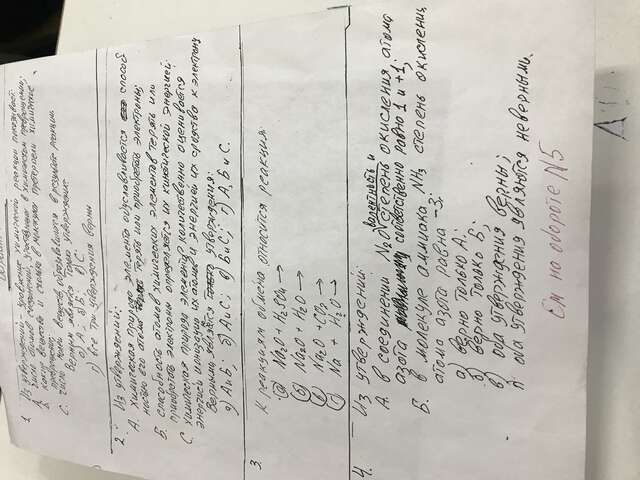 1. Из утверждений - уравнение химической реакции показывает:
А. число атомов соединений, участвовавших в химическом превращении;
Б. какие вещества и сколько в молекулах претерпели химическое
превращение;
С. число молей веществ, образовавшихся в результате реакции.
Верным является только утверждение:
а) А; б) Б; в) С
г) все три утверждения верны
2. Из утверждений:
А. химическая природа элемента обуславливается способ
ностью его атома терять или приобретать электроны;
Б. способность атомов химических элементов терять или
приобретать электроны определяется их кинетической энергией;
С. химическая природа элемента количественно оценивается
энергией ионизации их атомов и энергией их сродства к электрону
Верными являются утверждения:
а) А и Б; б) А и С; в) Б и С; г) А, Б и С.
3.
К реакциям обмена относится реакция:
а) Na2O + H2SO4 →
б) Na2O + H2O →
в) Na2O + CO2 →
г) Na + H2O →
4. Из утверждений:
валентность и
А. в соединении N2O степень окисления атома
азота соответственно равна 1 и +1;
Б. в молекуле аммиака NH3 степень окислениц
атома азота равна -3;
а) верно только А;
б) верно только Б;
в) оба утверждения верны;
г) оба утверждения являются неверными.
См на обороте N5